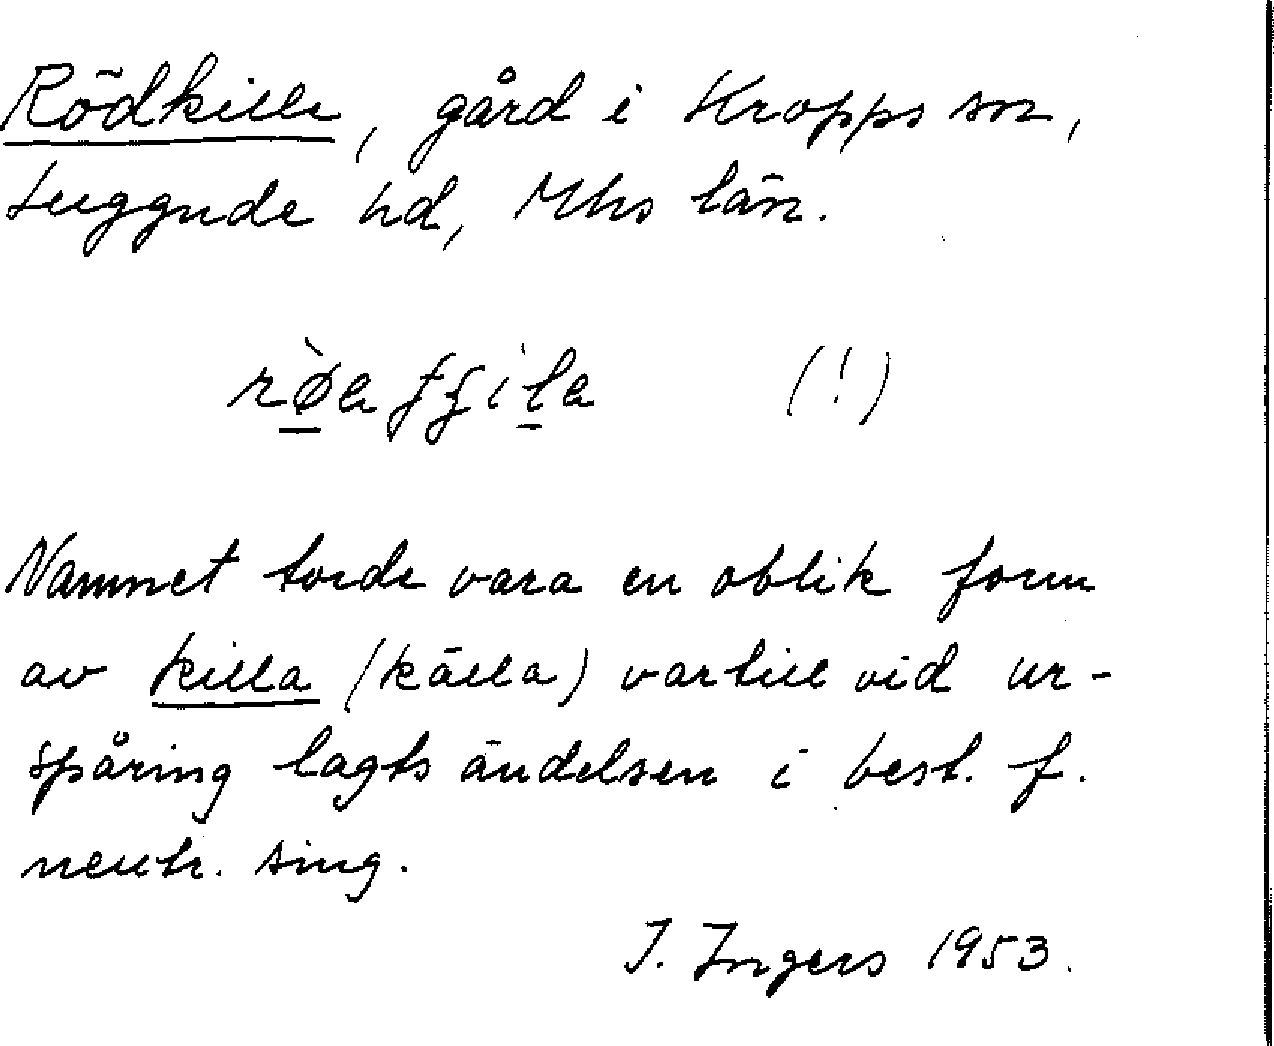 Rödkille, gård i Kropps sn,
Luggude hd, Mhs län.
(!)
Namnet torde vara en oblik form
av killa (källa) vartill vid ur-
spåring lagts ändelsen i best. f.
neutr. sing.
I. Ingers 1953.